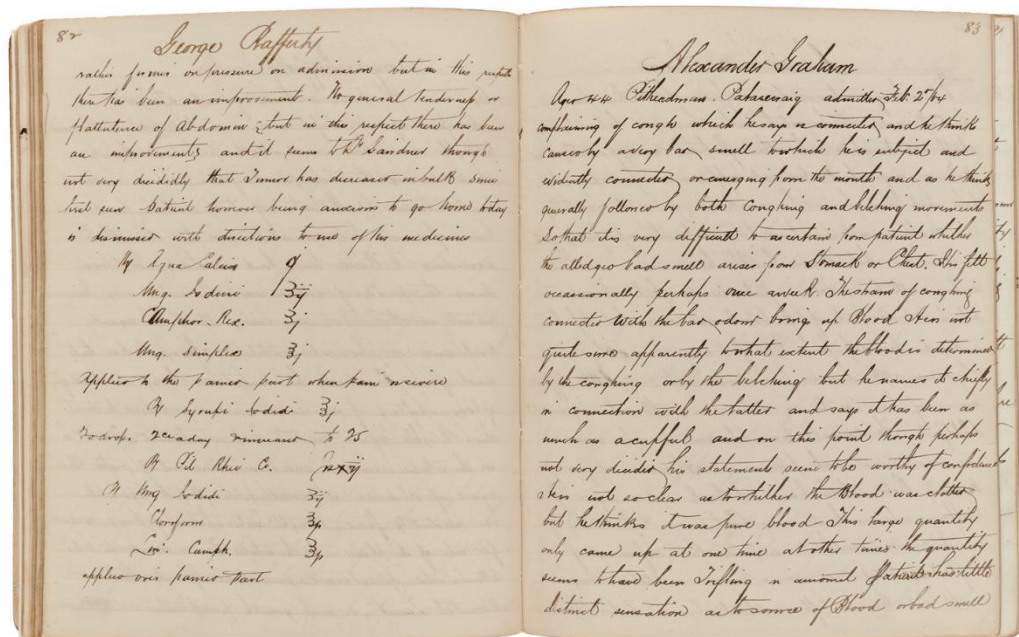 82
George Rafferty
rather firmer on pressure on admission but in this respect
there has been an improvement. No general tenderness or
flattulence of Abdomin; but in this respect there has been
an improvements and it seems to Dr Gairdner though
not very decididly that Tumor has decreased in bulk since
first seen Patient however being anxious to go home today
is dismissed with directions to use of his medicines
Ry Aqua Calcis
Ung. Iodini ʒij
Camphor. Rex. ʒj
Ung. Simplex ʒj
applied to the pained part when pain is severe
Ry Syrupi Iodidi ʒj
20 drops. 2ce a day increased to 25
Ry Pil Rhei C.
Ry Ung Iodidi ʒij
Cloroform
Lin. Camph.
applied over pained part
83
Alexander Graham
Aged 44 Pitheadman. admitted Feb. 2nd/64
complaining of cough which he says is connected and he thinks
caused by a very bad smell to which he is subject and
evidently connected or emerging from the mouth and as he thinks
generally followed by both Coughing and belching movements
So that it is very difficult to ascertain from patient whether
the alledged bad smell arises from Stomach or Chest. His fitts
occassionally perhaps once a week. The strain of coughing
connected with the bad odour brings up Blood It is not
quite sure apparently to what extent the blood is determined
by the coughing or by the belching but he names it chiefly
in connection with the latter and says it has been as
much as a cupful and on this point though perhaps
not very decided his statements seem to be worthy of confidence
It is not so clear as to whether the Blood was clotted
but he thinks it was pure blood This large quantity
only came up at one time at other times the quantity
seems to have been Trifling in amount Patient has little
distinct sensation as to source of Blood or bad smell